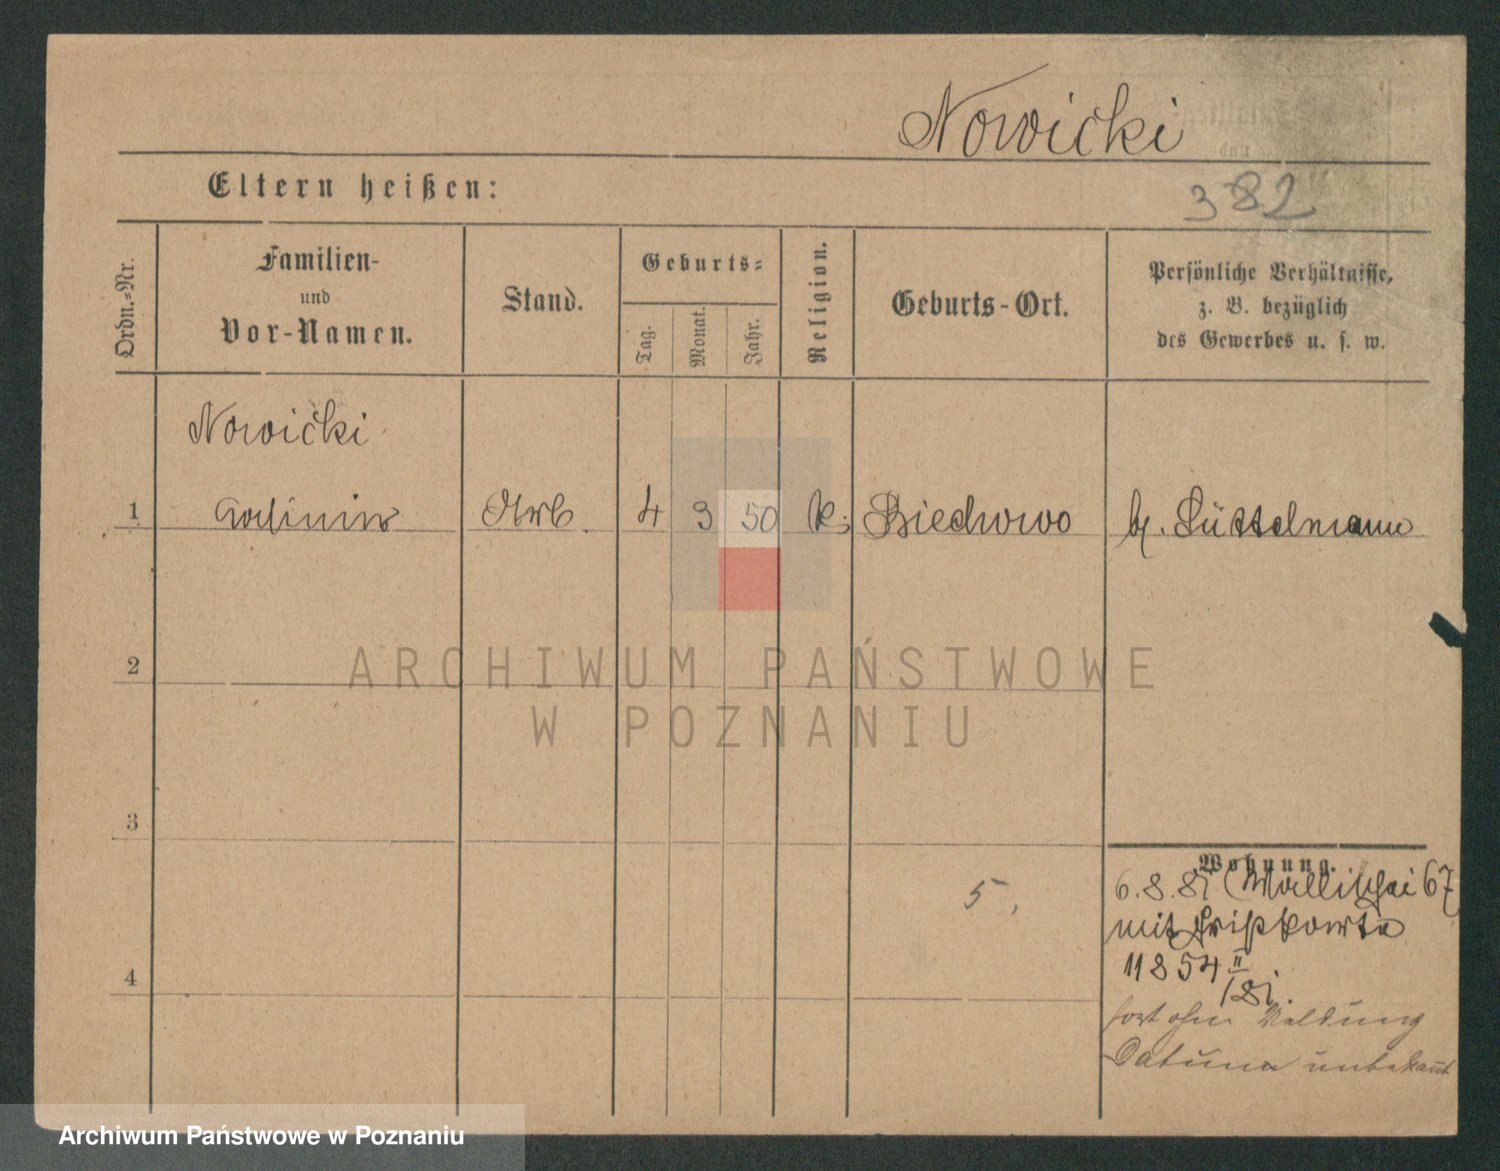 Nowicki
Eltern heißen:
382
Ordn.-Nr.
Familien-
und
Vor-Namen.
Stand.
Geburts-
Tag.
Monat.
Jahr.
Religion.
Geburts-Ort.
Persönliche Verhältnisse,
z. B. bezüglich
des Gewerbes u. s. w.
Nowicki
1 Casimir Arb. 4 3 50 k. Biechowo b. Lüttelmann
2
3
4
5.
Wohnung.
6.8.81 Wallischei 67
mit
11854 II
/81.
fort ohne Meldung
Datum unbekannt
ARCHIWUM PAŃSTWOWE
W POZNANIU
Archiwum Państwowe w Poznaniu